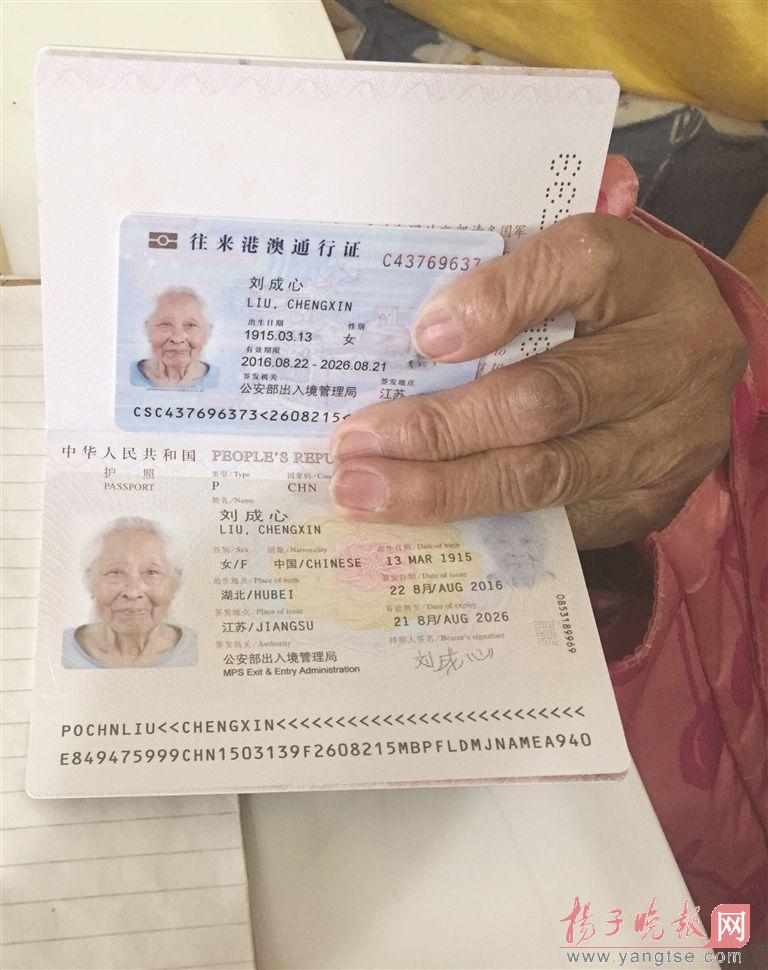 往来港澳通行证
C43769637
刘成心
LIU, CHENGXIN
出生日期 性别
1915.03.13 女
有效期限
2016.08.22 - 2026.08.21
签发机关 签发地点
公安部出入境管理局 江苏
CSC437696373<2608215<
中华人民共和国 PEOPLE'S REPU
护照 类型/Type 国家码/Cou
PASSPORT P CHN
姓名/Name
刘成心
LIU, CHENGXIN
性别/Sex 国籍/Nationality 出生日期/Date of birth
女/F 中国/CHINESE 13 MAR 1915
出生地点/Place of birth 签发日期/Date of issue
湖北/HUBEI 22 8月/AUG 2016
签发地点/Place of issue 有效期至/Date of expiry
江苏/JIANGSU 21 8月/AUG 2026
签发机关/Authority 持照人签名/Bearer's signature
公安部出入境管理局 刘成心
MPS Exit & Entry Administration
0853189969
POCHNLIU<<CHENGXIN<<<<<<<<<<<<<<<<<<<<<<<<<<
E849475999CHN1503139F2608215MBPFLDMJNAMEA940
扬子晚报网
www.yangtse.com